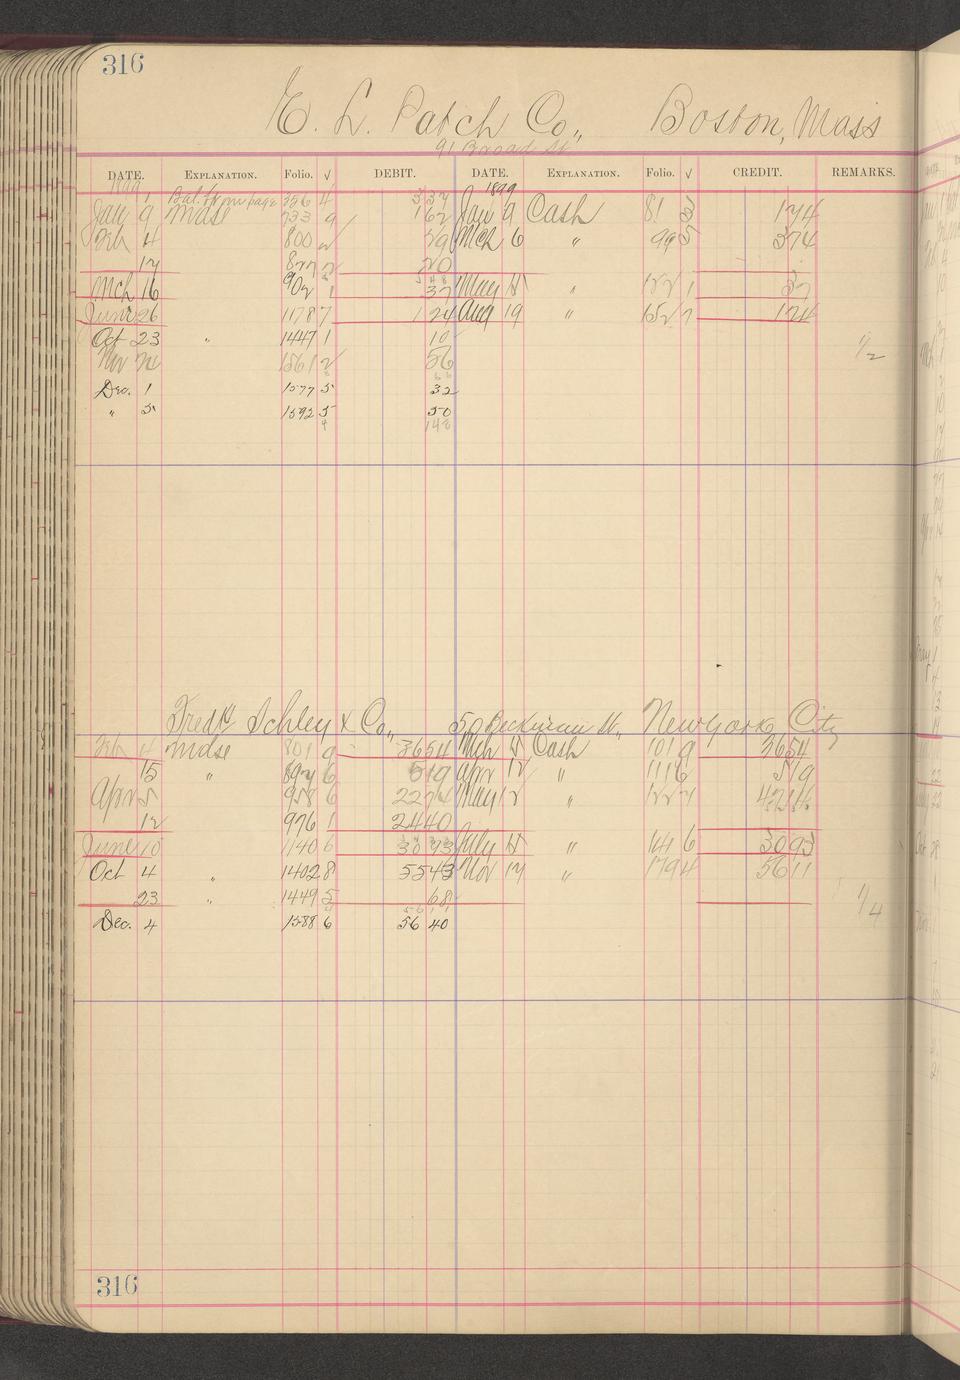 316
E. L. Patch Co., Boston, Mass
91 Broad St
DATE. EXPLANATION. Folio. √ DEBIT. DATE. EXPLANATION. Folio. √ CREDIT. REMARKS.
1899
1 Bal. from page 356 4 3 37
Jan 9 Mdse 733 9 1 62 Jan 9 Cash 81 174
Feb 4 800 79 Mch 6 " 99 374
17 20
Mch 16 902 1 37 May " 1 37
June 26 1178 7 1 24 Aug 19 " 152 7 124
Oct 23 " 1447 1 10 1/2
Nov 1561 2 56
Dec. 1 1577 5 32
" 5 1592 5 50
148
Fredk Schley & Co., 50 Beekman St., New York City
Feb 4 Mdse 801 9 3654 Mch Cash 101 9 3654
15 " 6 519 Apr 12 " 111 6 519
Apr 5 958 6 2274 May 12 "
12 976 1 2440
June 10 1140 6 3093 July " 164 6 3093
Oct 4 " 1402 8 5543 Nov 17 " 179 4 5611
23 " 1449 5 68 1/4
Dec. 4 1588 6 56 40
316